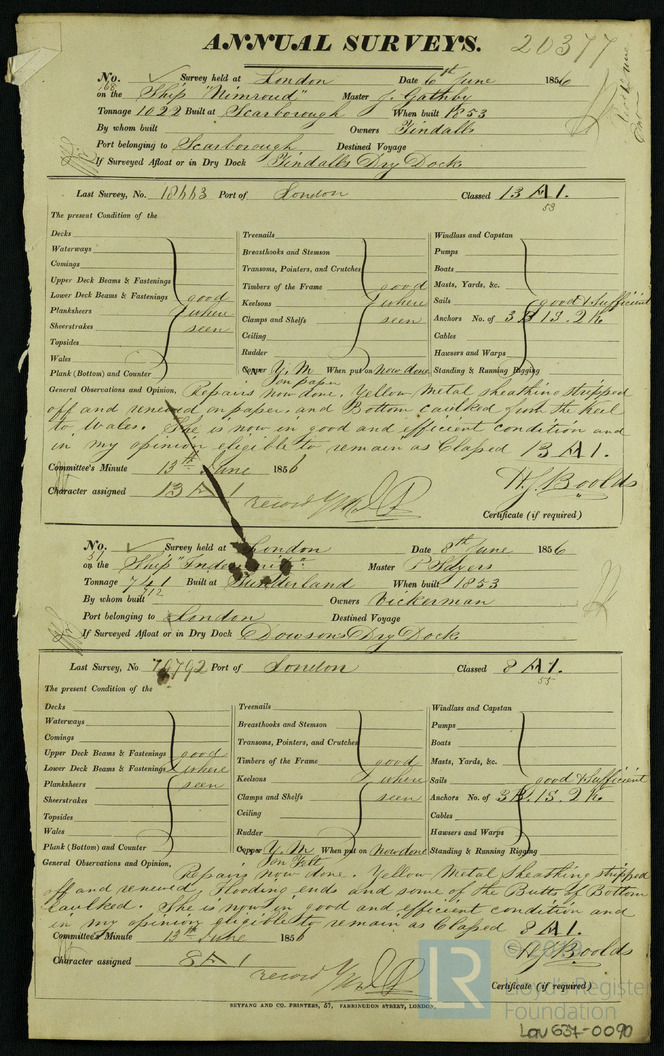 ANNUAL SURVEYS. 20377
No. Survey held at London Date 6th June 1856
168 on the Ship "Nimroud" Master J. Gathby
Tonnage 1022 Built at Scarborough When built 1853
By whom built Owners Tindalls
Port belonging to Scarborough Destined Voyage
If Surveyed Afloat or in Dry Dock Tindalls Dry Dock
Last Survey, No. 18663 Port of London Classed 13 A 1.
53
The present Condition of the
Decks Treenails Windlass and Capstan
Waterways Breasthooks and Stemson Pumps
Comings Transoms, Pointers, and Crutches Boats
Upper Deck Beams & Fastenings Timbers of the Frame good Masts, Yards, &c.
Lower Deck Beams & Fastenings good Keelsons where Sails good & Sufficient
Planksheers where Clamps and Shelfs seen Anchors No. of 3 B 1 S. 2 K.
Sheerstrakes seen Ceiling Cables
Topsides Rudder Hawsers and Warps
Wales Copper Y. M When put on now done Standing & Running Rigging
Plank (Bottom) and Counter on paper
General Observations and Opinion, Repairs now done. Yellow Metal sheathing stripped
off and renewed on paper. and Bottom caulked from the keel
to Wales. She is now in good and efficient condition and
in my opinion eligible to remain as Classed 13 A 1.
Committee's Minute 13th June 1856 H. J. Boolds
Character assigned 13 A 1 record YM
Certificate (if required)
No. Survey held at London Date 8th June 1856
on the Ship Master P Sayers
Tonnage 741 Built at Sunderland When built 1853
712
By whom built Owners Vickerman
Port belonging to London Destined Voyage
If Surveyed Afloat or in Dry Dock Dowsons Dry Dock
Last Survey, No Port of London Classed 8 A 1.
55
The present Condition of the
Decks Treenails Windlass and Capstan
Waterways Breasthooks and Stemson Pumps
Comings Transoms, Pointers, and Crutches Boats
Upper Deck Beams & Fastenings good Timbers of the Frame good Masts, Yards, &c.
Lower Deck Beams & Fastenings where Keelsons where Sails good & Sufficient
Planksheers seen Clamps and Shelfs seen Anchors No. of 3 B. 1 S. 2 K.
Sheerstrakes Ceiling Cables
Topsides Rudder Hawsers and Warps
Wales Copper Y. M When put on now done Standing & Running Rigging
Plank (Bottom) and Counter on Felt
General Observations and Opinion, Repairs now done. Yellow Metal Sheathing stripped
off and renewed, flooding ends and some of the Butts of Bottom
Caulked. She is now in good and efficient condition and
in my opinion eligible to remain as Classed 8 A 1.
Committee's Minute 13th June 1856 H J Boolds
Character assigned 8 A 1 record YM
Certificate (if required)
REYFANG AND CO. PRINTERS, 57, FARRINGDON STREET, LONDON.
LR Lloyd's Register
Foundation
LON 637-0090